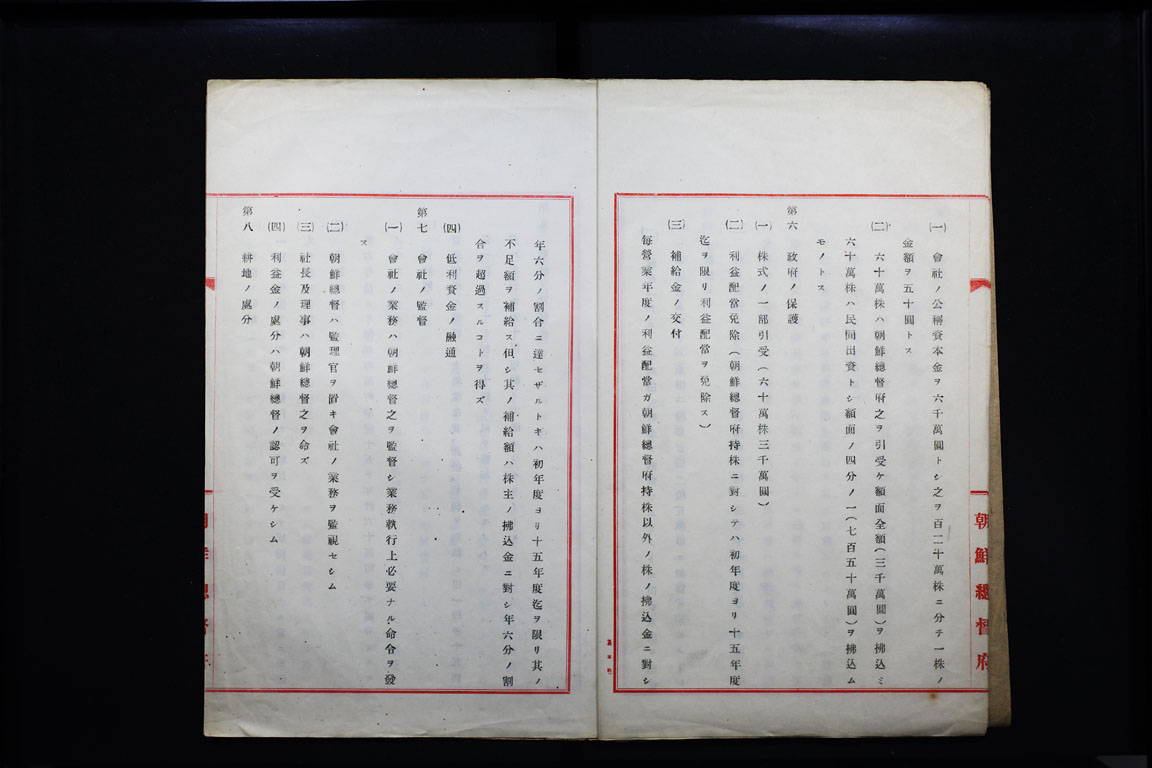 朝鮮總督府
㈠ 會社ノ公稱資本金ヲ六千萬圓トシ之ヲ百二十萬株ニ分チ一株ノ
金額ヲ五十圓トス
㈡ 六十萬株ハ朝鮮總督府之ヲ引受ケ額面全額(三千萬圓)ヲ拂込ミ
六十萬株ハ民間出資トシ額面ノ四分ノ一(七百五十萬圓)ヲ拂込ム
モノトス
第六 政府ノ保護
㈠ 株式ノ一部引受(六十萬株三千萬圓)
㈡ 利益配當免除(朝鮮總督府持株ニ對シテハ初年度ヨリ十五年度
迄ヲ限リ利益配當ヲ免除ス)
㈢ 補給金ノ交付
每營業年度ノ利益配當ガ朝鮮總督府持株以外ノ株ノ拂込金ニ對シ
年六分ノ割合ニ達セザルトキハ初年度ヨリ十五年度迄ヲ限リ其ノ
不足額ヲ補給ス但シ其ノ補給額ハ株主ノ拂込金ニ對シ年六分ノ割
合ヲ超過スルコトヲ得ズ
㈣ 低利資金ノ融通
第七 會社ノ監督
㈠ 會社ノ業務ハ朝鮮總督之ヲ監督シ業務執行上必要ナル命令ヲ發
ス
㈡ 朝鮮總督ハ監理官ヲ置キ會社ノ業務ヲ監視セシム
㈢ 社長及理事ハ朝鮮總督之ヲ命ズ
㈣ 利益金ノ處分ハ朝鮮總督ノ認可ヲ受ケシム
第八 耕地ノ處分